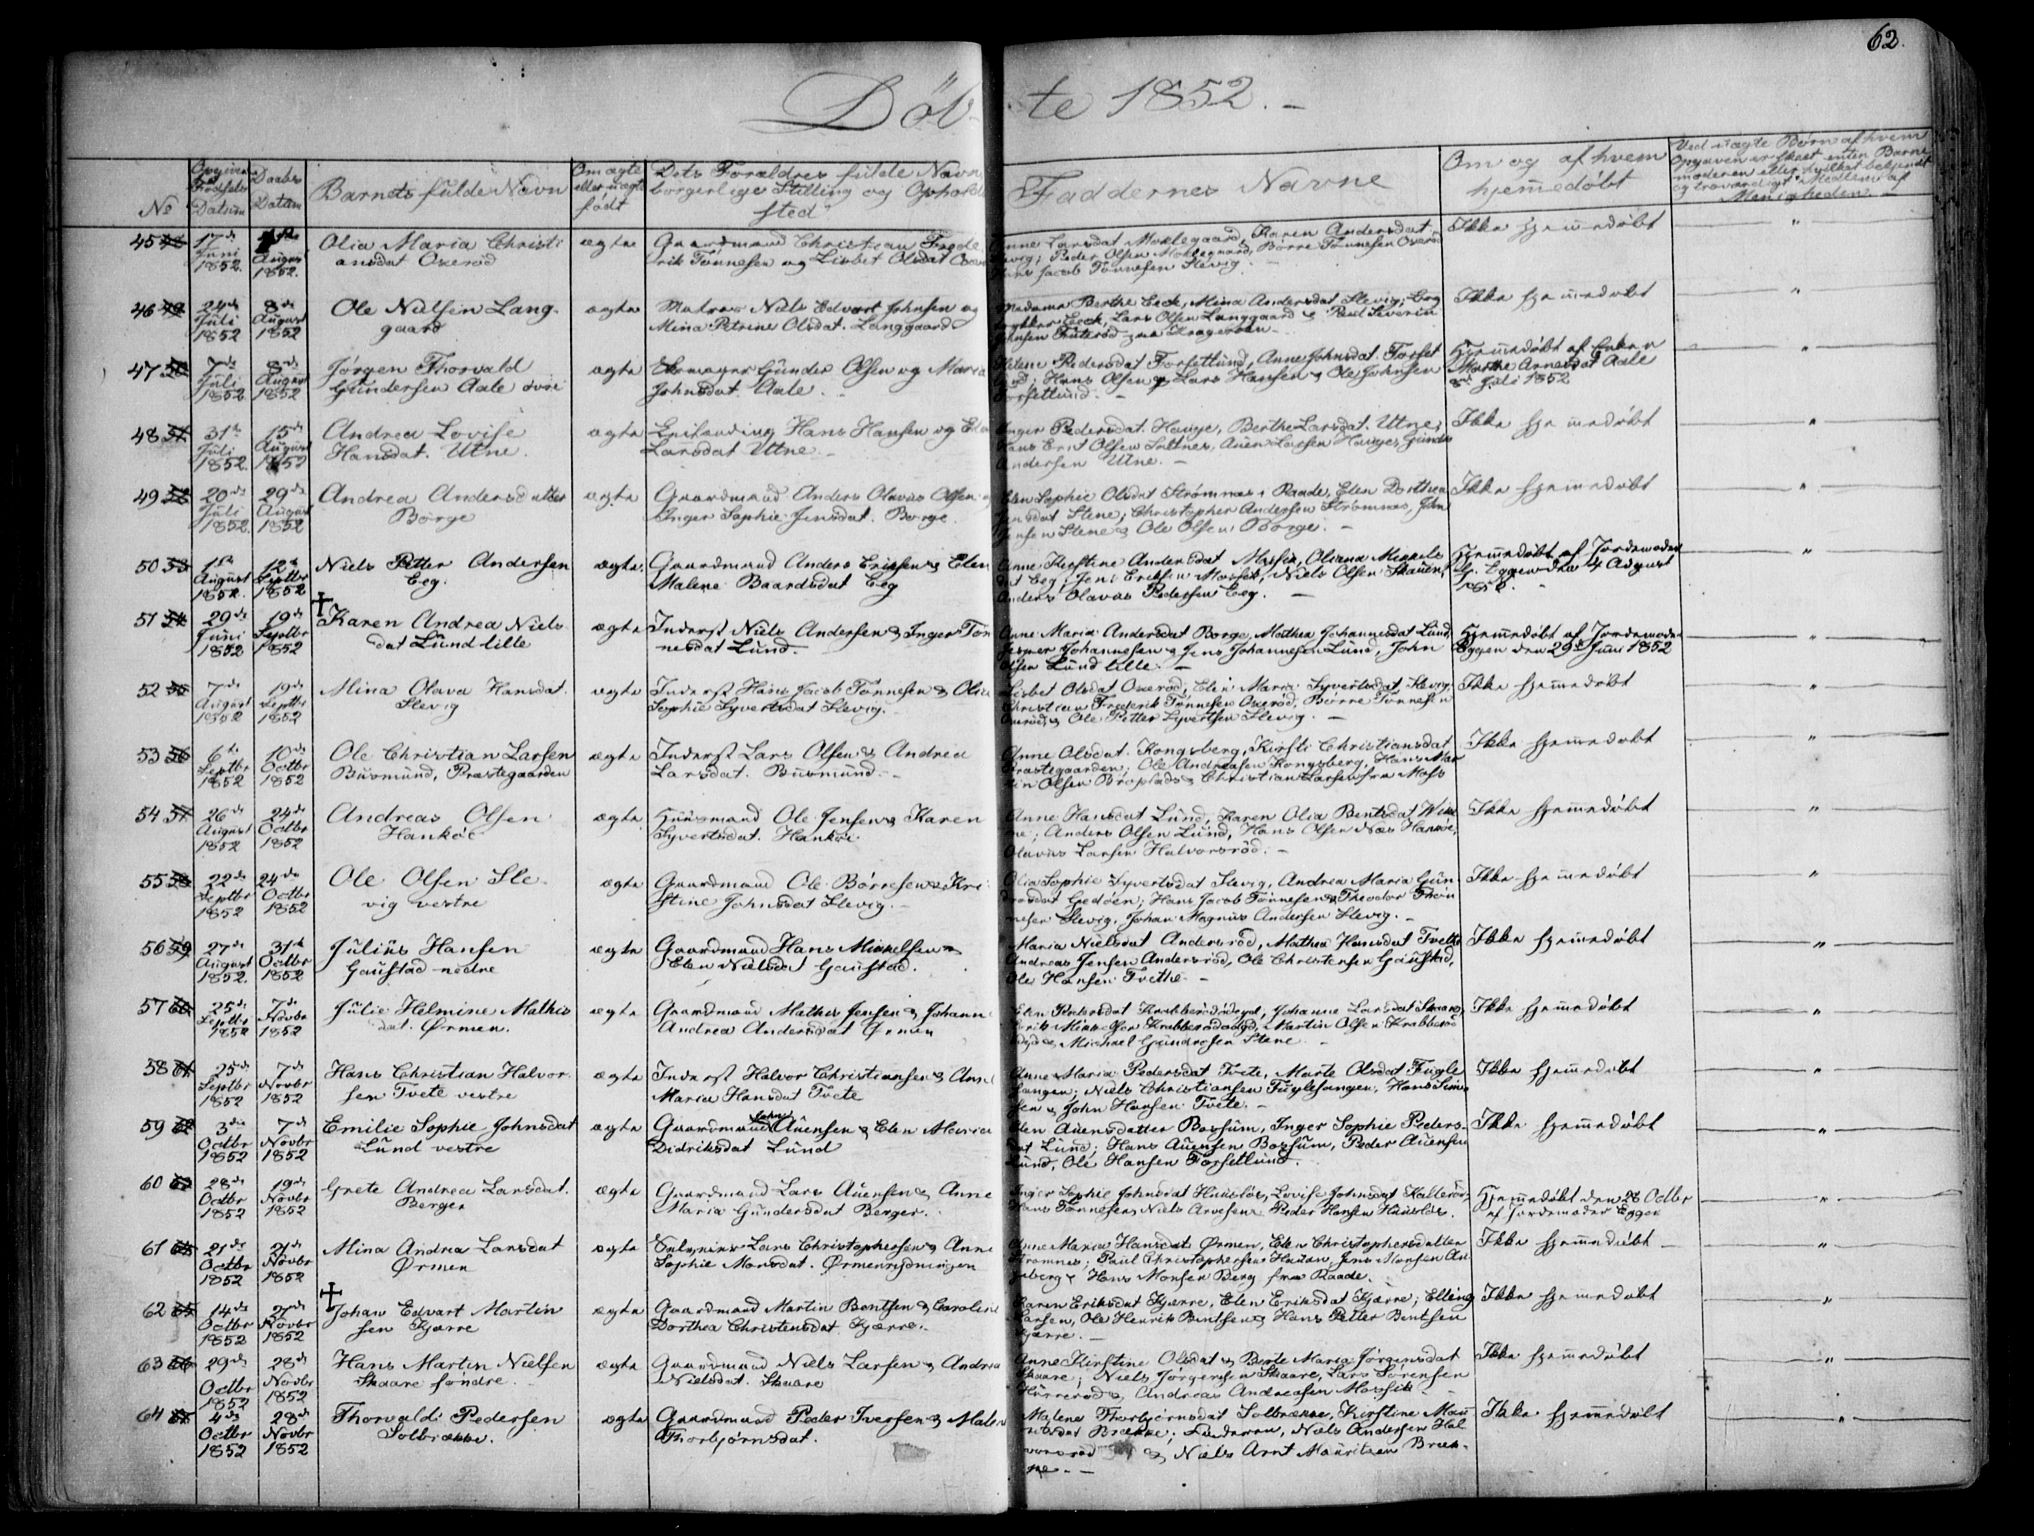 62.
Döbte 1852.
No
Opgiven Födsels Datum
Daabs Datum
Barnets fulde Navn
Om ægte eller uægte født
Dets Forældres fulde Navn borgerlige Stilling og Opholdssted
Faddernes Navne
Om og af hvem hjemmedøbt
45 17de Juni 1852. August 1852.
Olia Maria Christiansdat Oxeröd
ægte
Gaardmand Christian Frederik Tönnesen og Lisbet Olsdat
Anne Larsdat Moklegaard, Karen Andersdat
Slevig; Peder Olsen Moklegaard, Börre Tönnesen Oxeröd
Hans Jacob Tönnesen Slevig.
Ikke hjemmedöbt
46 24de Juli 1852 8de August 1852
Ole Nielsen Langgaard
ægte
Matros Niels Edvart Johnsen og
Mina Petrine Olsdat. Langgaard
Madame Berthe Eeck, Mina Andersdat Slevig;
Eeck, Lars Olsen Langgaard & Paul Severin
Johnsen
Ikke hjemmedöbt
47 7de Juli 1852 8de August 1852
Jörgen Thorvald
Gundersen Aale övre
ægte
Gunder Olsen og Maria
Johnsdat. Aale.
Helene Pedersdat Forsetlund, Anne Johnsdat. Forset
lund; Hans Olsen & Lars Hansen & Ole Johnsen
Forsetlund.
Hjemmedöbt af Enken
Marthe Arnesdat Aale
Juli 1852
48 31te Juli 1852. 15de August 1852
Andrea Lovise
Hansdat. Utne.
ægte
Hans Hansen og
Larsdat Utne.
Inger Pedersdat. Hauge, Berthe Larsdat. Utne;
Hans Erit Olsen Saltnes, Auen Larsen Hauge, Gunder
Andersen Utne.
Ikke hjemmedöbt
49 20de Juli 1852. 29de August 1852
Andrea Andersdatter
Borge
ægte
Gaardmand Anders Olavus Olsen
Inger Sophie Jensdat. Borge.
Elen Sophie Olsdat Strömnæs i Raade, Elen Dorthea
Jensdat Stene; Christopher Andersen Strömnæs, John
Jensen Stene & Ole Olsen Borge.
Ikke hjemmedöbt
50 1ste August 1852. 12te Septbr 1852
Niels Petter Andersen
Eeg.
ægte.
Gaardmand Anders Ericsen & Elen
Malene Baardsdat Eeg
Anne Kirstine Andersdat Mossik, Oliana Mikkels
dat Eeg; Jens Eriksen Mossik, Niels Olsen Skauen,
Anders Olavus Pedersen Eeg.
Hjemmedöbt af Jordemoder
Eggen den 4 August
51 29de Juni 1852 19de Septbr 1852
Karen Andrea Niels
dat Lund lille
ægte
Inderst Niels Andersen & Inger Tön
nesdat Lund.
Anne Maria Andersdat Borge, Mathea Johannesdat Lund,
Jesper Johannesen & Jens Johannesen Lund, John
Olsen Lund lille.
Hjemmedöbt af Jordemoder
Eggen den 29de Juni 1852
52 7de August 1852 19de Septbr 1852
Mina Olava Hansdat.
Slevig
ægte
Inderst Hans Jacob Tönnesen & Olia
Sophie Syvertsdat Slevig.
Lisbet Olsdat Oxeröd; Elen Maria Syvertsdat Slevig;
Christian Frederik Tönnesen Oxeröd, Börre Tönnesen
Oxeröd & Ole Petter Syvertsen Slevig.
Ikke hjemmedöbt
53 6te Septbr 1852 10de Octbr 1852
Ole Christian Larsen
Busmund, Præstegaarden
ægte
Inderst Lars Olsen & Andrea
Larsdat. Busmund.
Anne Olsdat. Kongsberg, Kirsti Christiansdat
Præstegaarden; Ole Andreasen Kongsberg, Hans Mar
tin Olsen Broplads & Christian Larsen fra Moss
Ikke hjemmedöbt
54 26de August 1852 24de Octbr 1852
Andreas Olsen
Hankøe
ægte
Huusmand Ole Jensen & Karen
Syvertsdat. Hankøe.
Anne Hansdat Lund, Karen Olia Bentsdat
Anders Olsen Lund, Hans Olsen Næs Hankøe,
Olavus Larsen Halvorsröd.
Ikke hjemmedöbt
55 22de Septbr 1852 24de Octbr 1852
Ole Olsen Sle
vig vestre
ægte
Gaardmand Ole Börresen & Kri
stine Johnsdat Slevig.
Olia Sophie Syvertsdat Slevig, Andrea Maria Gun
dersdat Gedöen; Hans Jacob Tönnesen & Theodor Thön
nesen Slevig, Johan Magnus Andersen Slevig.
Ikke hjemmedöbt
56 27de August 1852. 31te Octbr 1852
Julius Hansen
Gaustad nedre
ægte
Gaardmand Hans Mikkelsen &
Elen Nielsdat Gaustad.
Maria Nielsdat Andersröd, Mathea Hansdat Tvette
Andreas Jensen Andersröd, Ole Christensen Gaustad,
Ole Hansen Tvethe.
Ikke hjemmedöbt
57 25de Septbr 1852 7de Novbr 1852
Julie Helmine Mathis
dat. Ørmen.
ægte
Gaardmand Mathis Jensen & Johann
Andrea Andersdat Ørmen
Elen Pedersdat Krabberödødegd, Johanne Larsdat Skaare,
Erik Mikkelsen Krabberödødgd, Martin Olsen Krabberöd
& Michael Gundersen Stene
Ikke hjemmedöbt
58 25de Septbr 1852 7de Novbr 1852
Hans Christian Halvor
sen Tvete vestre
ægte
Inderst Halvor Christiansen & Anne
Maria Hansdat Tvete
Anne Maria Pedersdat Tvete, Marte Olsdat Fugle
sangen; Niels Christiansen Fuglesangen, Hans Simo
sen & John Hansen Tvete.
Ikke hjemmedöbt
59 3die Octbr 1852 7de Novbr 1852
Emilie Sophie Johnsdat
Lund vestre
ægte
Gaardmand John Auensen & Elen Maria
Didriksdat Lund
Elen Auensdatter Bossum, Inger Sophie Peders
dat Lund; Hans Auensen Bossum, Peder Auensen
Lund, Ole Hansen Forsetlund.
Ikke hjemmedöbt
60 28de Octbr 1852 19de Novbr 1852
Grete Andrea Larsdat.
Berger
ægte
Gaardmand Lars Auensen & Anne
Maria Gundersdat Berger.
Inger Sophie Johnsdat Huuslös, Lovise Johnsdat Kalleröd,
Hans Tönnesen, Niels Arvesen & Peder Hansen Huuslös.
Hjemmedöbt den 28 Octbr
af Jordemoder Eggen
61 21de Octbr 1852 21de Novbr 1852
Mina Andrea Larsdat
Ørmen
ægte
Selveier Lars Christophersen & Anne
Sophie Monsdat. Ørmenrydningen
Anne Maria Hansdat Ørmen, Elen Christophersdatter
Strömnes; Paul Christophersen Hauan, Jens Monsen An
& Hans Monsen Berg fra Raade.
Ikke hjemmedöbt
62 14de Octbr 1852 21de Novbr 1852
Johan Edvart Martin
sen Kjærre
ægte
Gaardmand Martin Bentsen & Caroline
Dorthea Christensdat Kjærre.
Karen Eriksdat Kjærre, Elen Eriksdat Kjærre; Elling
Larsen, Ole Henrik Bentsen & Hans Petter Bentsen
Kjærre.
Ikke hjemmedöbt
63 29de Octbr 1852 28de Novbr 1852
Hans Martin Nielsen
Skaare søndre.
ægte
Gaardmand Niels Larsen & Andrea
Nielsdat. Skaare
Anne Kirstine Olsdat & Berte Maria Jörgensdat
Skaare; Niels Jörgensen Skaare, Lars Sörensen
& Andreas Andreasen Mossik
Ikke hjemmedöbt
64 4de Octbr 1852 28de Novbr 1852
Thorvald Pedersen
Solbrække.
ægte
Gaardmand Peder Iversen & Malen
Thorbjørnsdat.
Malene Thorbjørnsdat Solbrække, Kirstine Mau
ritsdat Brække; Faderen, Niels Andersen Hal
vorsröd & Niels Arnt Mauritsen Bræk
ke.
Ikke hjemmedöbt